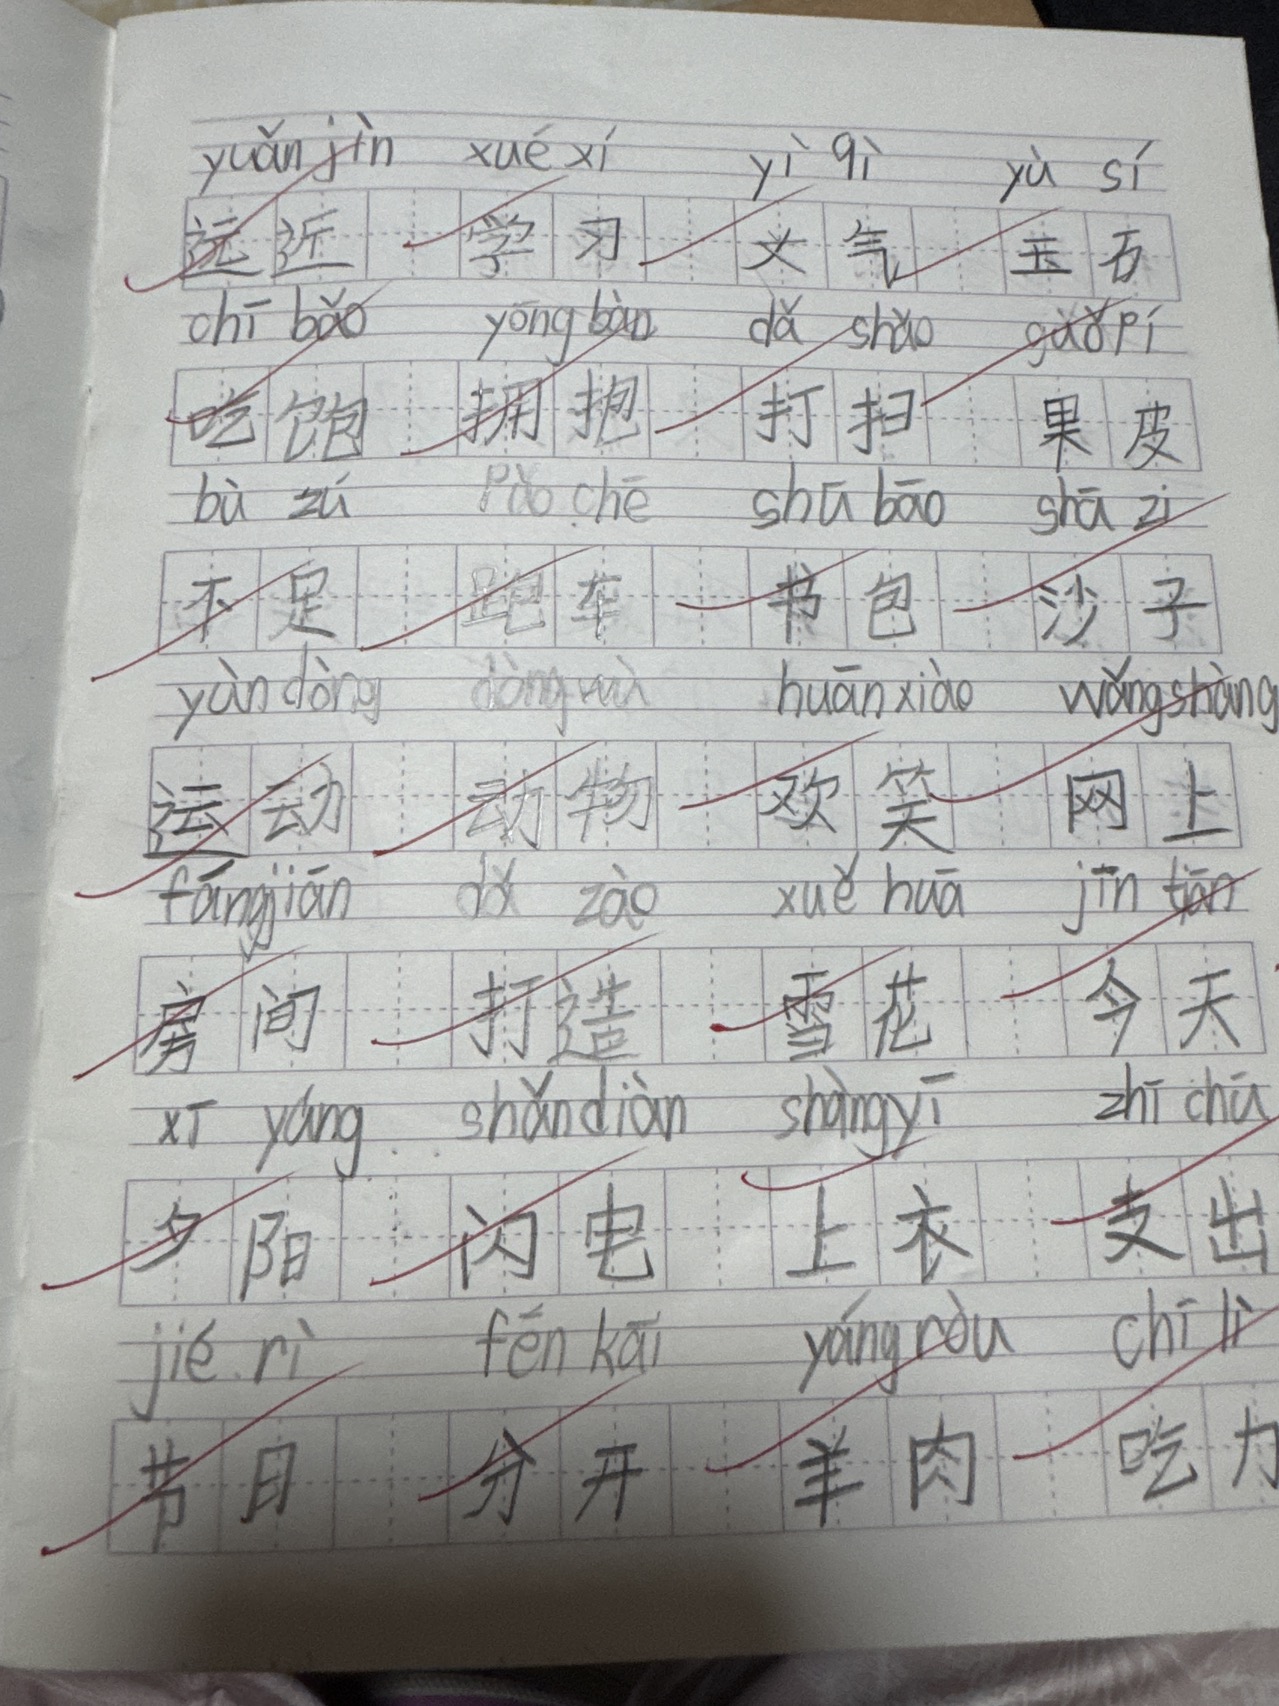 yuǎn jìn xué xí yì qì yù sí
远近 学习 义气 玉石
chī bǎo yōng bàn dǎ shǎo guǒ pí
吃饱 拥抱 打扫 果皮
bù zú Pǎo chē shū bāo shā zi
不足 跑车 书包 沙子
yùn dòng dòng wù huān xiào wǎng shàng
运动 动物 欢笑 网上
fáng jiān dǎ zào xuě huā jīn tiān
房间 打造 雪花 今天
xī yáng shǎn diàn shàng yī zhī chū
夕阳 闪电 上衣 支出
jié rì fēn kāi yáng ròu chī lì
节日 分开 羊肉 吃力